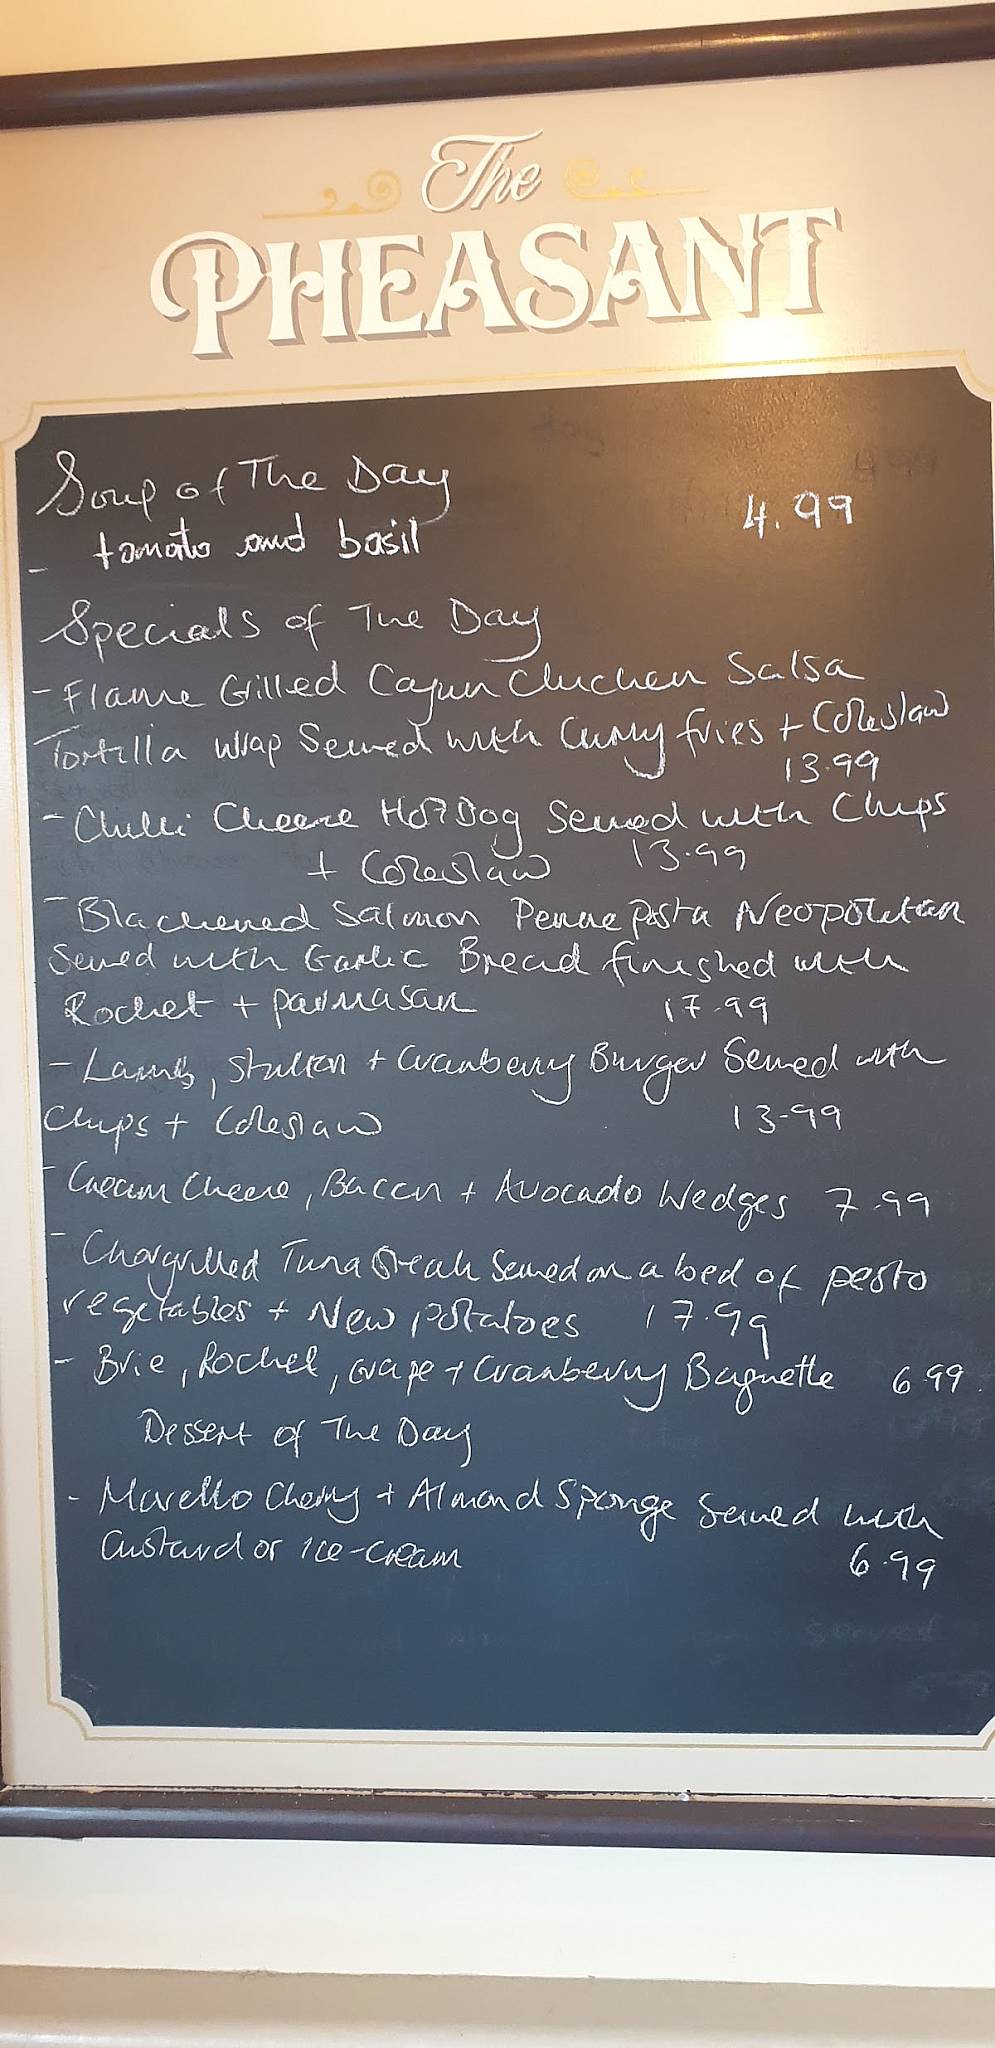 The
PHEASANT
Soup of The Day
- tomato and basil 4.99
Specials of The Day
- Flame Grilled Cajun Chicken Salsa
Tortilla Wrap Served with Curly fries + Coleslaw
13.99
- Chilli Cheese Hot Dog Served with Chips
+ Coleslaw 13.99
- Blackened Salmon Penne pasta Neopolitan
Served with Garlic Bread finished with
Rocket + parmasan 17.99
- Lamb, Stilton + Cranberry Burger Served with
Chips + Coleslaw 13-99
- Cream Cheese, Bacon + Avocado Wedges 7.99
- Chargrilled Tuna Steak Served on a bed of pesto
vegetables + New potatoes 17.99
- Brie, Rocket, Grape + Cranberry Baguette 6.99
Dessert of The Day
- Morello Cherry + Almond Sponge Served with
Custard or ice-cream 6.99